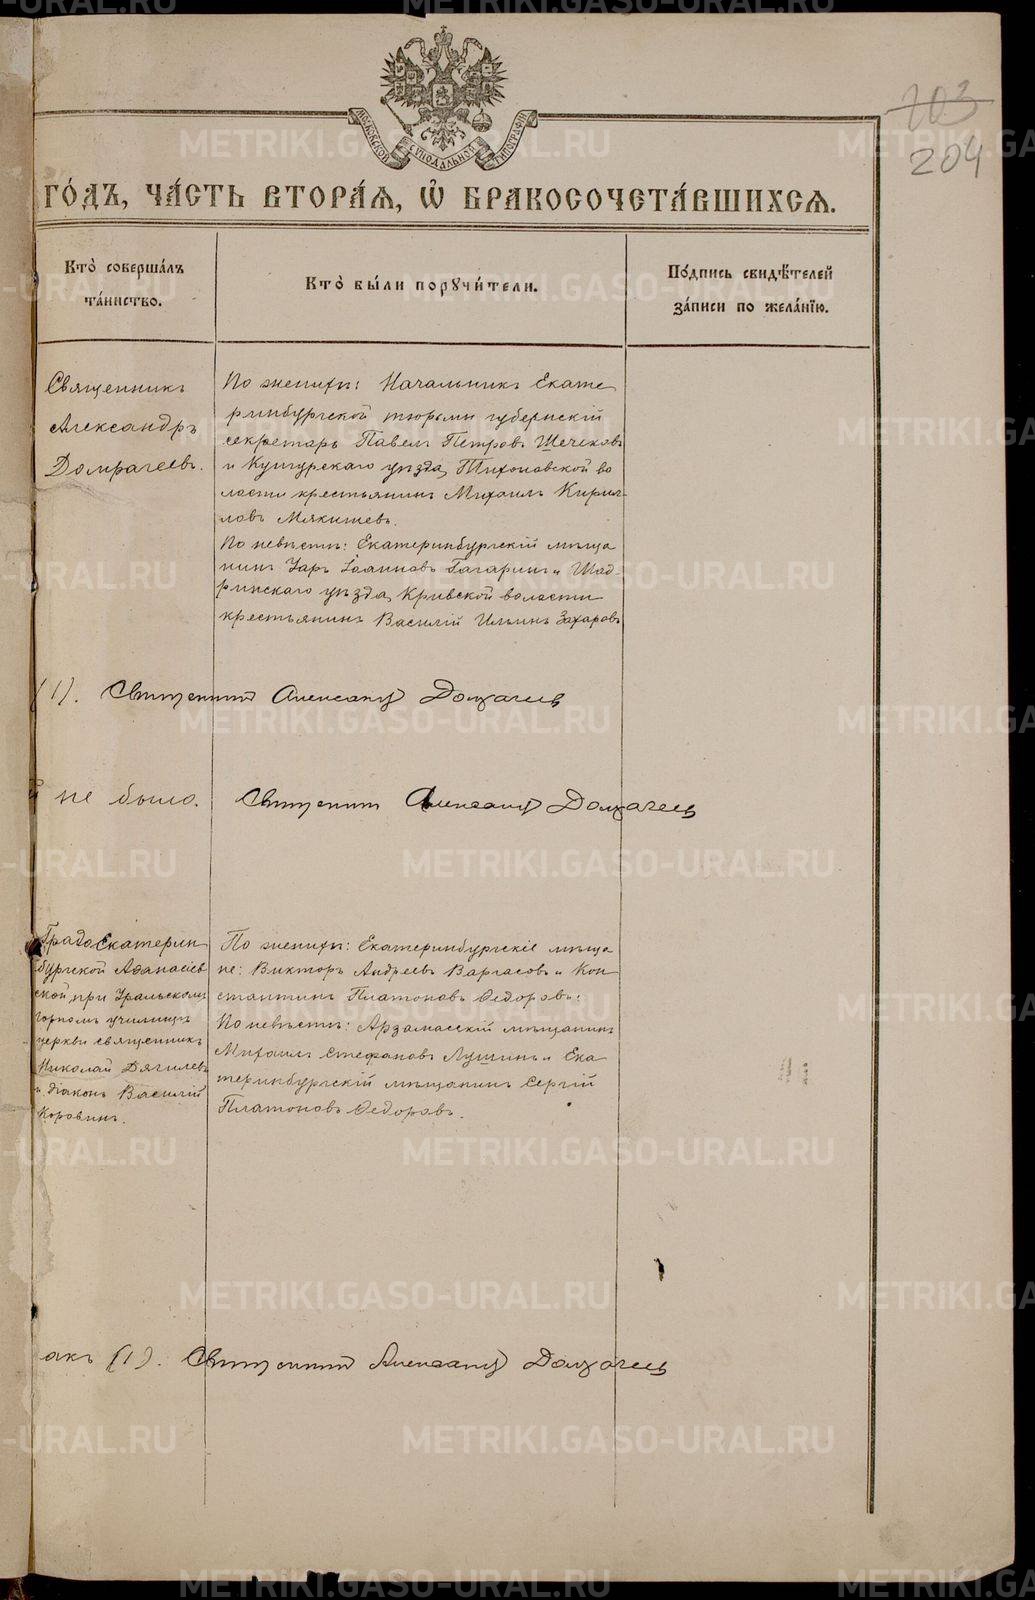 МОСКОВСКОЙ СУНОДАЛЬНОЙ ТИПОГРАФІИ
703
204
ГО́ДЪ, ЧА́СТЬ ВТОРА́Ѧ, Ѽ БРАКОСОЧЕТА́ВШИХСѦ.
Кто̀ соверша́лъ
та́инство.
Кто̀ бы́ли порꙋчи́тели.
По́дпись свидѣ́телей
за́писи по жела́нїю.
Священникъ
Александръ
Домрачеевъ.
По женихѣ: Начальникъ Екате
ринбургской тюрьмы губернскій
секретарь Павелъ Петровъ Шечековъ
и Кунгурскаго уѣзда, Тихоновской во
лости крестьянинъ Михаилъ Кирил-
ловъ Мякишевъ.
По невѣстѣ: Екатеринбургскій мѣща
нинъ Уаръ Іоанновъ Гагаринъ и Шад-
ринскаго уѣзда, Кривской волости
крестьянинъ Василій Ильинъ Захаровъ
(1). Священникъ Александръ Домрачеев
й не было. Священникъ Александръ Домрачеев
Градо Екатерин
бургской Аѳанасіев
ской, при Уральскомъ
горномъ училищѣ
церкви священникъ
Николай Дягилевъ
и діаконъ Василій
Коровинъ.
По женихѣ: Екатеринбургскіе мѣща
не: Викторъ Андреевъ Варгасовъ и Кон
стантинъ Платоновъ Ѳедоровъ;
По невѣстѣ: Арзамасскій мѣщанинъ
Михаилъ Стефановъ Лушинъ и Ека
теринбургскій мѣщанинъ Сергій
Платоновъ Ѳедоровъ.
акъ (1). Священникъ Александръ Домрачеев
METRIKI.GASO-URAL.RU